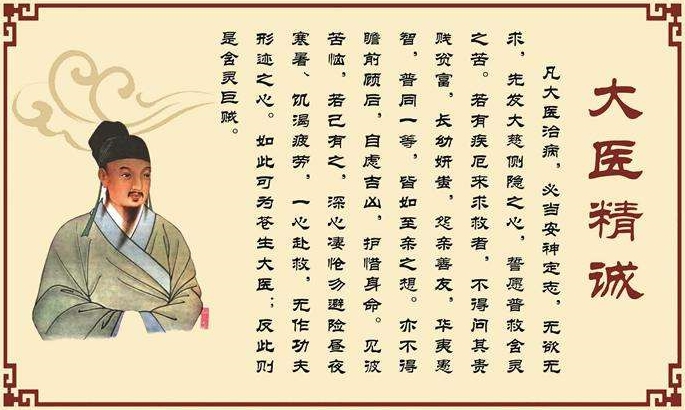 大医精诚
凡大医治病，必当安神定志，无欲无
求，先发大慈恻隐之心，誓愿普救含灵
之苦。若有疾厄来求救者，不得问其贵
贱贫富，长幼妍蚩，怨亲善友，华夷愚
智，普同一等，皆如至亲之想。亦不得
瞻前顾后，自虑吉凶，护惜身命。见彼
苦恼，若己有之，深心凄怆勿避险昼夜
寒暑、饥渴疲劳，一心赴救，无作功夫
形迹之心。如此可为苍生大医；反此则
是含灵巨贼。